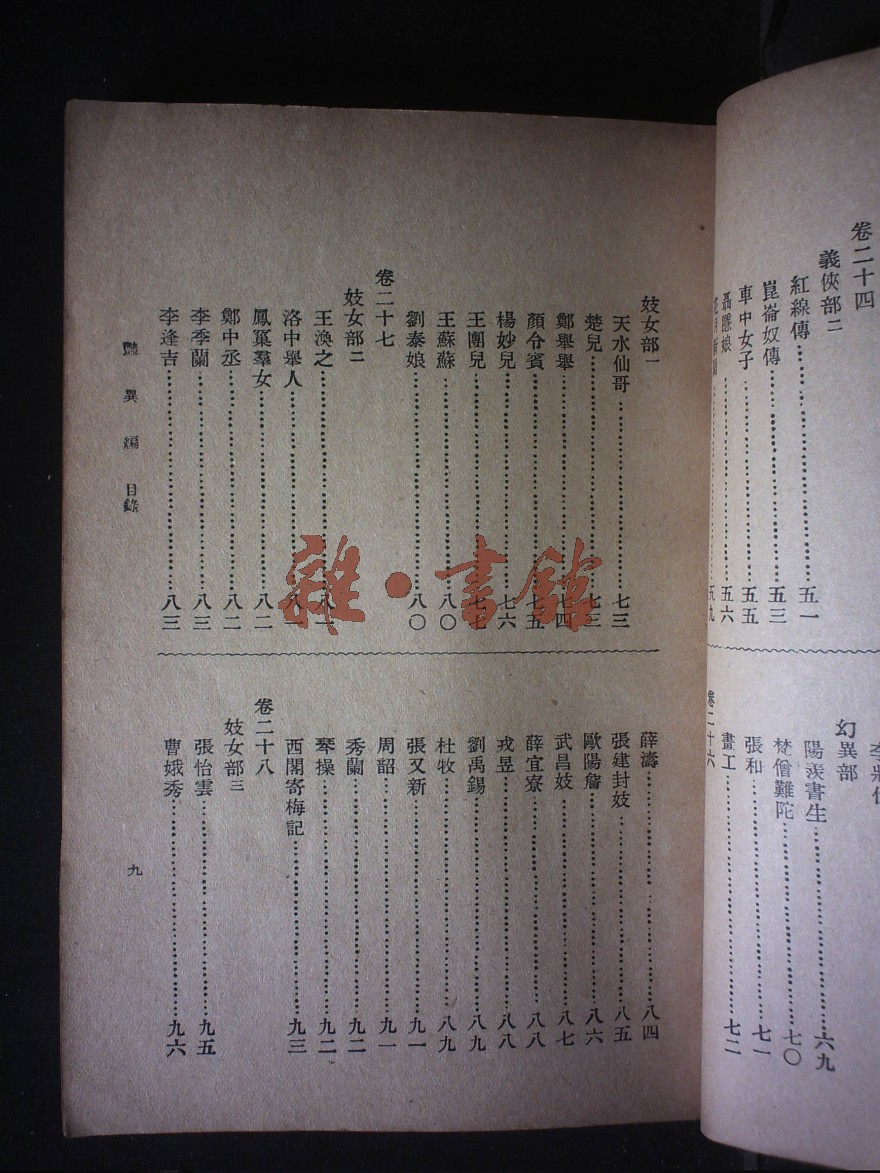 卷二十四
義俠部二
紅線傳……五一
崑崙奴傳……五三
車中女子……五五
聶隱娘……五六
幻異部
陽羨書生……六九
梵僧難陀……七〇
張和……七一
畫工……七二
卷二十六
妓女部一
天水仙哥……七三
楚兒……七三
鄭舉舉……七四
顏令賓……七五
楊妙兒……七六
王團兒……七七
王蘇蘇……八〇
劉泰娘……八〇
卷二十七
妓女部二
王渙之……八一
洛中舉人……八一
鳳窠羣女……八二
鄭中丞……八二
李季蘭……八三
李逢吉……八三
薛濤……八四
張建封妓……八五
歐陽詹……八六
武昌妓……八七
薛宜寮……八八
戎昱……八八
劉禹錫……八九
杜牧……八九
張又新……九一
周韶……九一
秀蘭……九二
琴操……九二
西閣寄梅記……九三
卷二十八
妓女部三
張怡雲……九五
曹娥秀……九六
豔異編 目錄
九
雜·書館